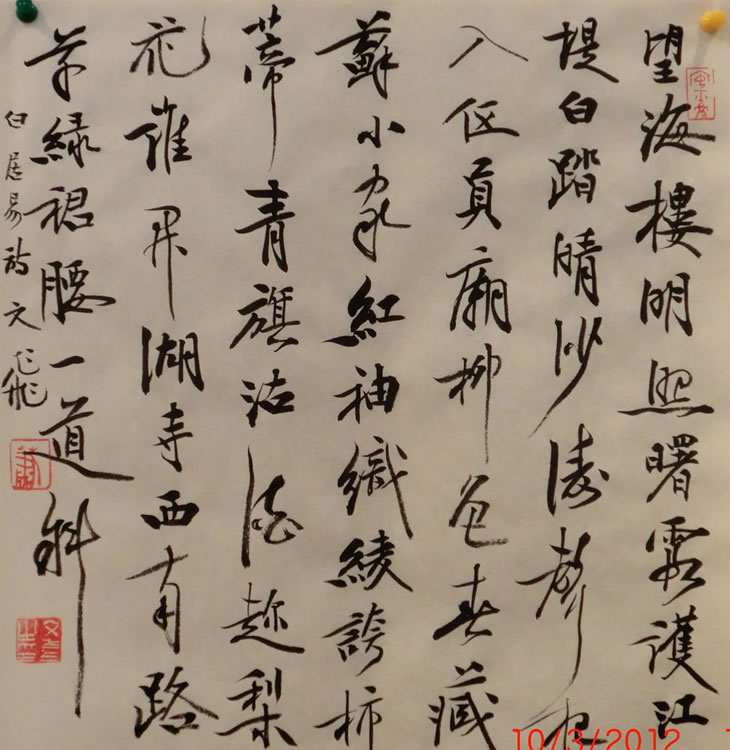 望海樓明照曙霞護江
堤白踏晴沙濤聲夜
入伍員廟柳色春藏
蘇小家紅袖織綾誇柿
蒂青旗沽酒趁梨
花誰開湖寺西南路
草緑裙腰一道斜
白居易詩文飛
10/3/2012